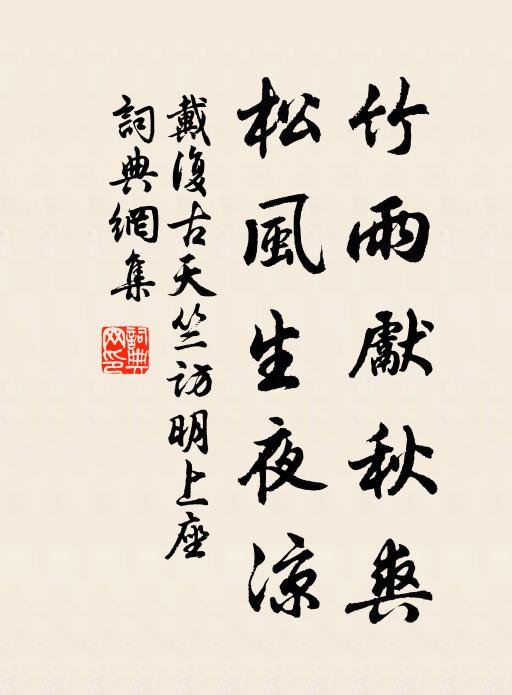 竹雨獻秋爽
松風生夜涼
戴復古天竺訪明上座
詞典網集
詞典
网印